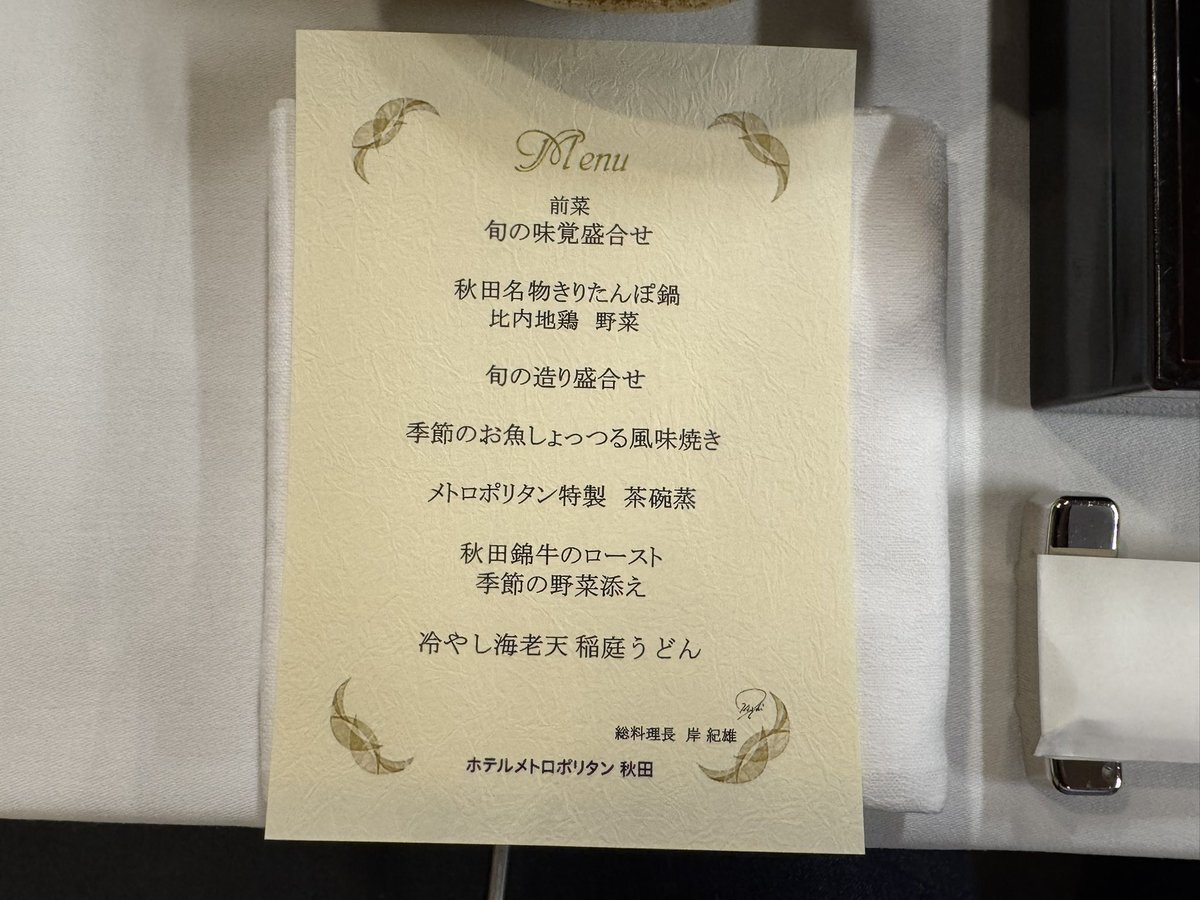 Menu
前菜
旬の味覚盛合せ
秋田名物きりたんぽ鍋
比内地鶏 野菜
旬の造り盛合せ
季節のお魚しょっつる風味焼き
メトロポリタン特製 茶碗蒸
秋田錦牛のロースト
季節の野菜添え
冷やし海老天 稲庭うどん
総料理長 岸 紀雄
ホテルメトロポリタン 秋田